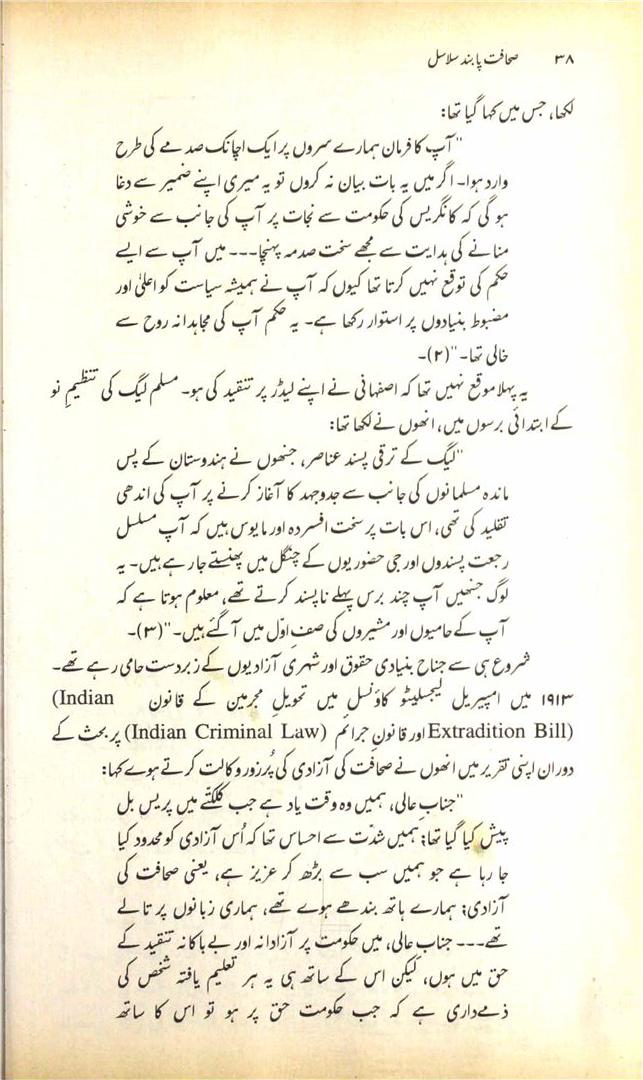 ۳۸ صحافت پابند سلاسل
لکھا، جس میں کہا گیا تھا:
"آپ کا فرمان ہمارے سروں پر ایک اچانک صدمے کی طرح
وارد ہوا۔ اگر میں یہ بات بیان نہ کروں تو یہ میری اپنے ضمیر سے دغا
ہو گی کہ کانگریس کی حکومت سے نجات پر آپ کی جانب سے خوشی
منانے کی ہدایت سے مجھے سخت صدمہ پہنچا۔۔۔ میں آپ سے ایسے
حکم کی توقع نہیں کرتا تھا کیوں کہ آپ نے ہمیشہ سیاست کو اعلیٰ اور
مضبوط بنیادوں پر استوار رکھا ہے۔ یہ حکم آپ کی مجاہدانہ روح سے
خالی تھا۔"(۲)۔
یہ پہلا موقع نہیں تھا کہ اصفہانی نے اپنے لیڈر پر تنقید کی ہو۔ مسلم لیگ کی تنظیمِ نو
کے ابتدائی برسوں میں، انھوں نے لکھا تھا:
"لیگ کے ترقی پسند عناصر، جنھوں نے ہندوستان کے پس
ماندہ مسلمانوں کی جانب سے جدوجہد کا آغاز کرنے پر آپ کی اندھی
تقلید کی تھی، اس بات پر سخت افسردہ اور مایوس ہیں کہ آپ مسلسل
رجعت پسندوں اور جی حضوریوں کے چنگل میں پھنستے جا رہے ہیں۔ یہ
لوگ جنھیں آپ چند برس پہلے ناپسند کرتے تھے، معلوم ہوتا ہے کہ
آپ کے حامیوں اور مشیروں کی صفِ اوّل میں آ گئے ہیں۔"(۳)۔
شروع ہی سے جناح بنیادی حقوق اور شہری آزادیوں کے زبردست حامی رہے تھے۔
۱۹۱۳ میں امپیریل لیجسلیٹو کاؤنسل میں تحویلِ مجرمین کے قانون (Indian
Extradition Bill) اور قانونِ جرائم (Indian Criminal Law) پر بحث کے
دوران اپنی تقریر میں انھوں نے صحافت کی آزادی کی پُرزور وکالت کرتے ہوے کہا:
"جنابِ عالی، ہمیں وہ وقت یاد ہے جب کلکتّے میں پریس بل
پیش کیا گیا تھا؛ ہمیں شدّت سے احساس تھا کہ اُس آزادی کو محدود کیا
جا رہا ہے جو ہمیں سب سے بڑھ کر عزیز ہے، یعنی صحافت کی
آزادی؛ ہمارے ہاتھ بندھے ہوے تھے، ہماری زبانوں پر تالے
تھے۔۔۔ جنابِ عالی، میں حکومت پر آزادانہ اور بے باکانہ تنقید کے
حق میں ہوں، لیکن اس کے ساتھ ہی یہ ہر تعلیم یافتہ شخص کی
ذمے داری ہے کہ جب حکومت حق پر ہو تو اس کا ساتھ